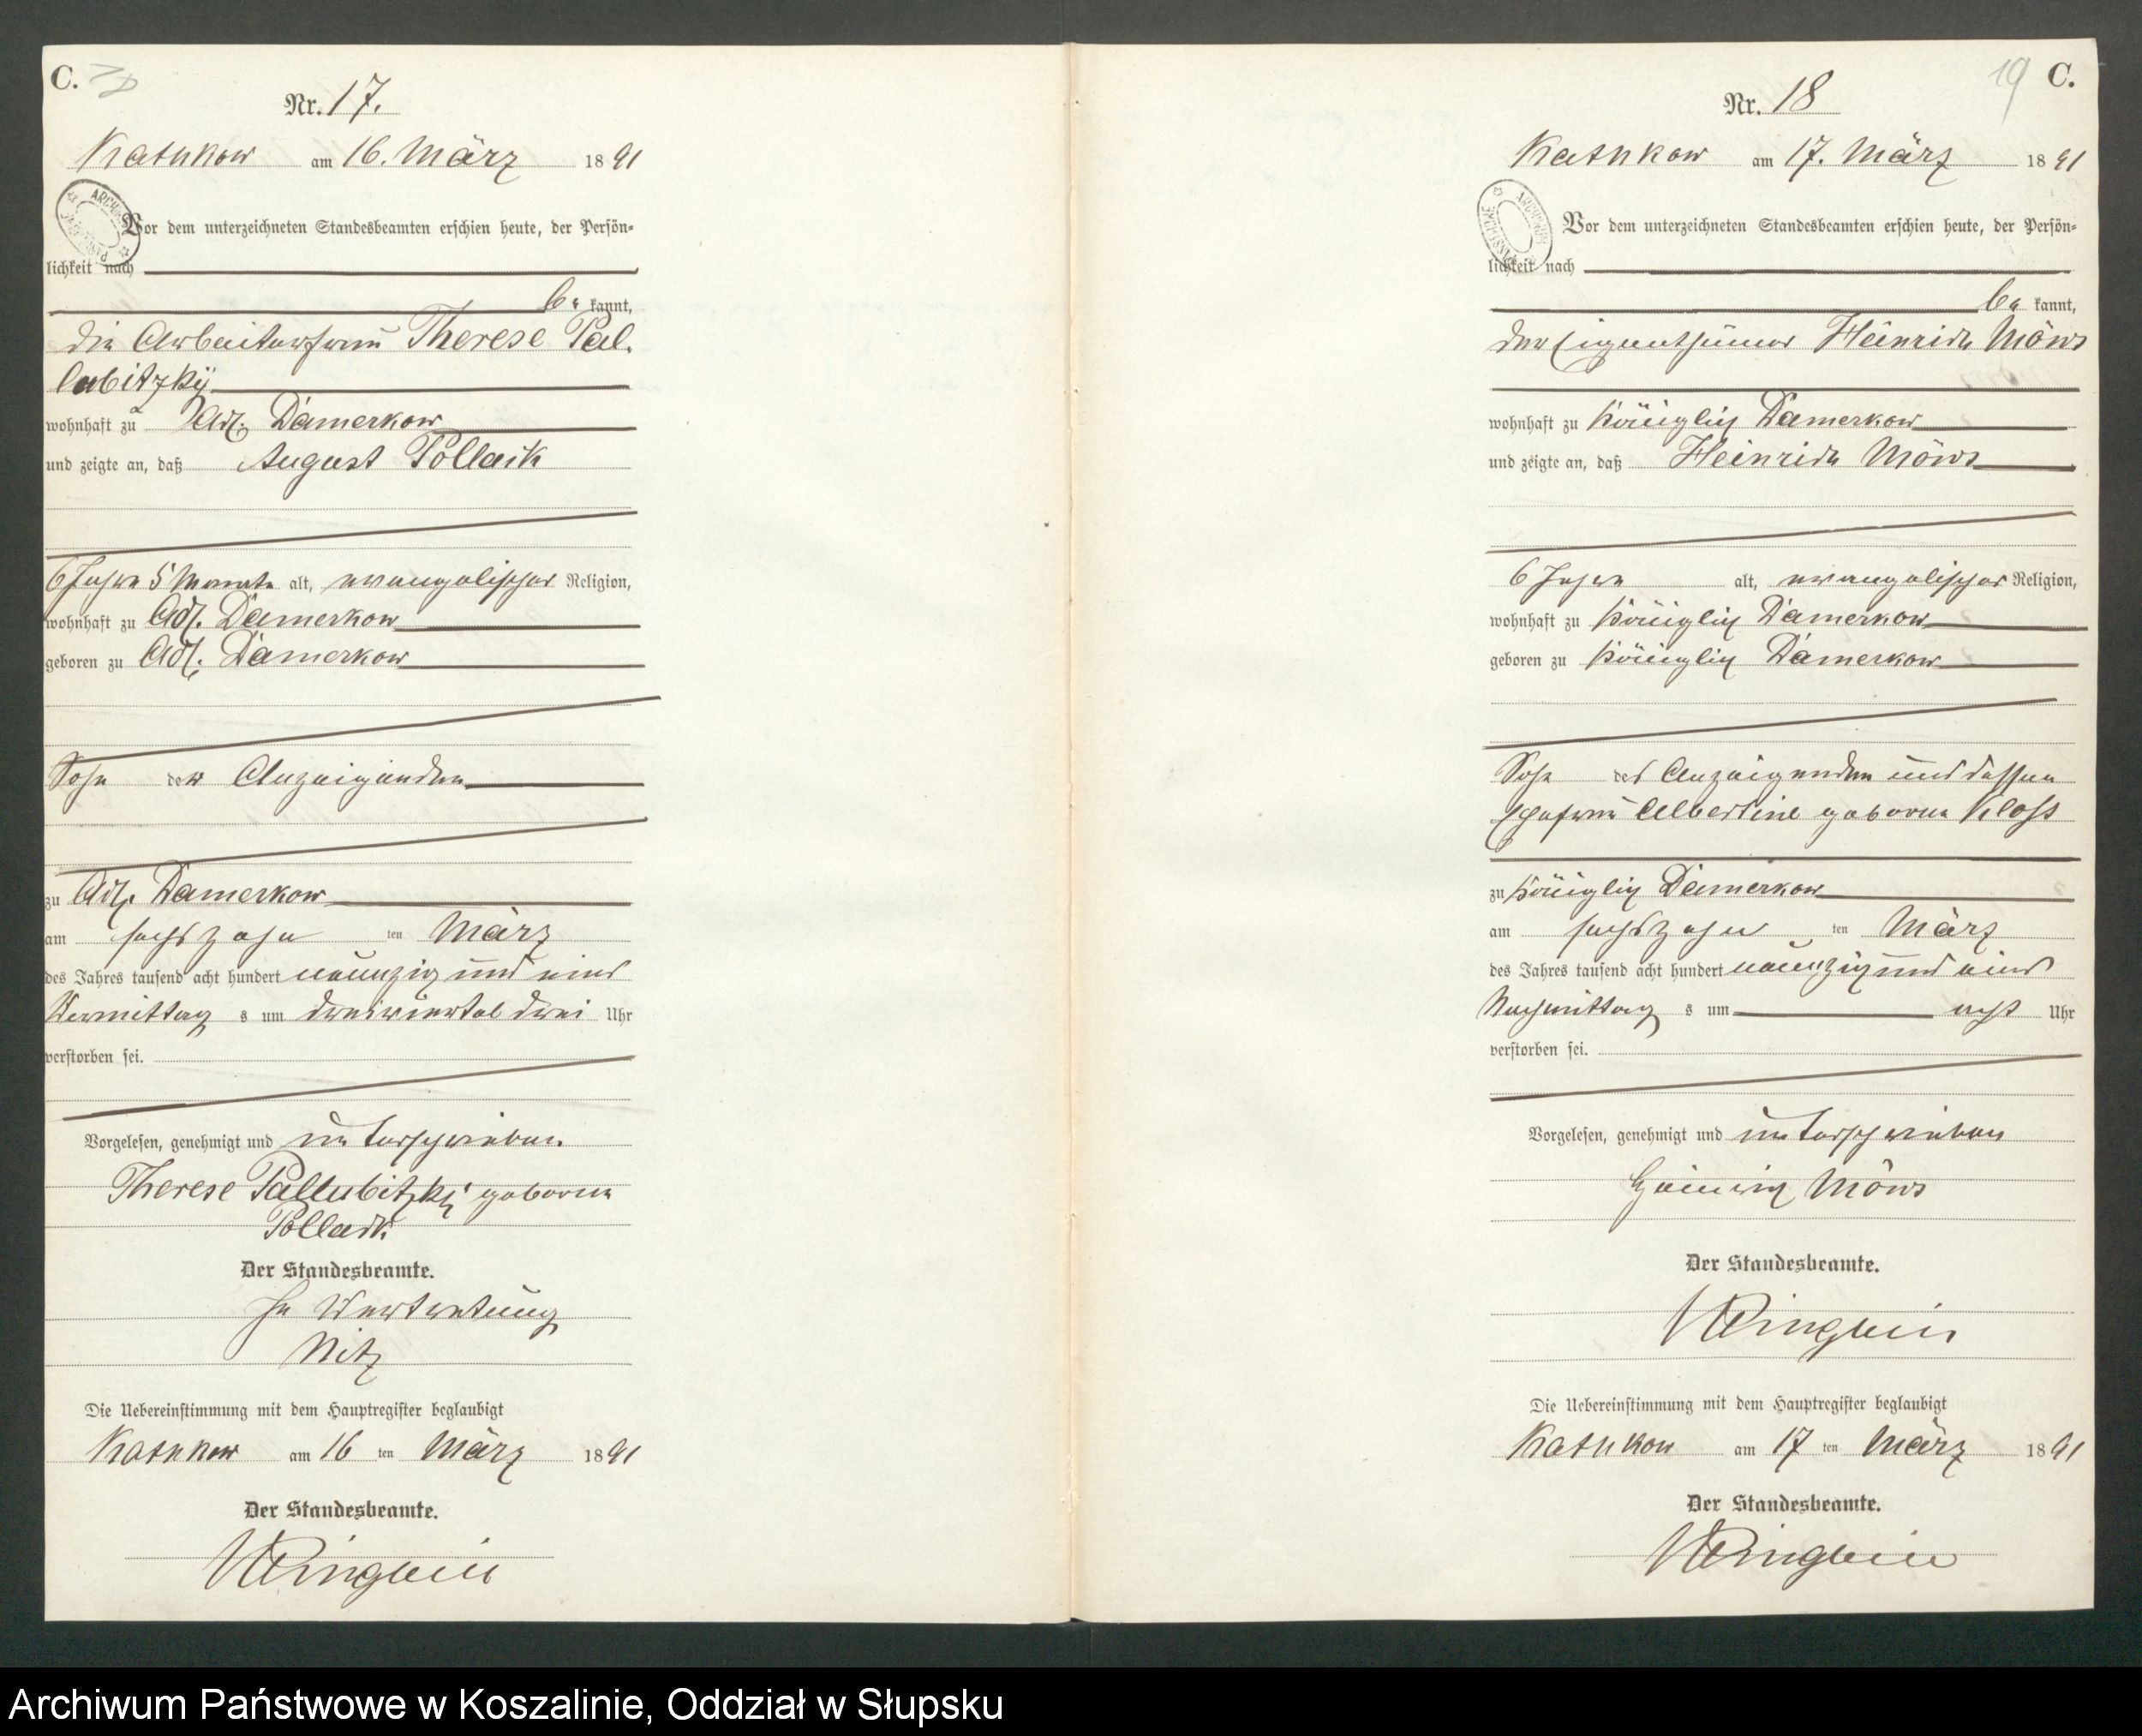 C.
Nr. 17.
Kathkow am 16. März 1891
Vor dem unterzeichneten Standesbeamten erschien heute, der Persön-
lichkeit nach
be kannt,
die Arbeiterfrau Therese Pal-
lubitzky
wohnhaft zu Adl. Damerkow
und zeigte an, daß August Pollack
6 Jahre 5 Monate alt, evangelischer Religion,
wohnhaft zu Adl. Damerkow
geboren zu Adl. Damerkow
Sohn der Anzeigenden
zu Adl. Damerkow
am sechszehn ten März
des Jahres tausend acht hundert neunzig und eins
Vormittag s um dreiviertel drei Uhr
verstorben sei.
Vorgelesen, genehmigt und unterschrieben.
Therese Pallubitzki geborene
Pollack.
Der Standesbeamte.
In Vertretung
Nitz
Die Uebereinstimmung mit dem Hauptregister beglaubigt
Kathkow am 16 ten März 1891
Der Standesbeamte.
19 C.
Nr. 18
Kathkow am 17. März 1891
Vor dem unterzeichneten Standesbeamten erschien heute, der Persön-
lichkeit nach
be kannt,
der Eigenthümer Heinrich Möws
wohnhaft zu Königlich Damerkow
und zeigte an, daß Heinrich Möws
6 Jahre alt, evangelischer Religion,
wohnhaft zu Königlich Damerkow
geboren zu Königlich Damerkow
Sohn des Anzeigenden und dessen
Ehefrau Albertine geborene Kloß
zu Königlich Damerkow
am sechszehn ten März
des Jahres tausend acht hundert neunzig und eins
Nachmittag s um acht Uhr
verstorben sei.
Vorgelesen, genehmigt und unterschrieben
Heinrich Möws
Der Standesbeamte.
Die Uebereinstimmung mit dem Hauptregister beglaubigt
Kathkow am 17 ten März 1891
Der Standesbeamte.
Archiwum Państwowe w Koszalinie, Oddział w Słupsku